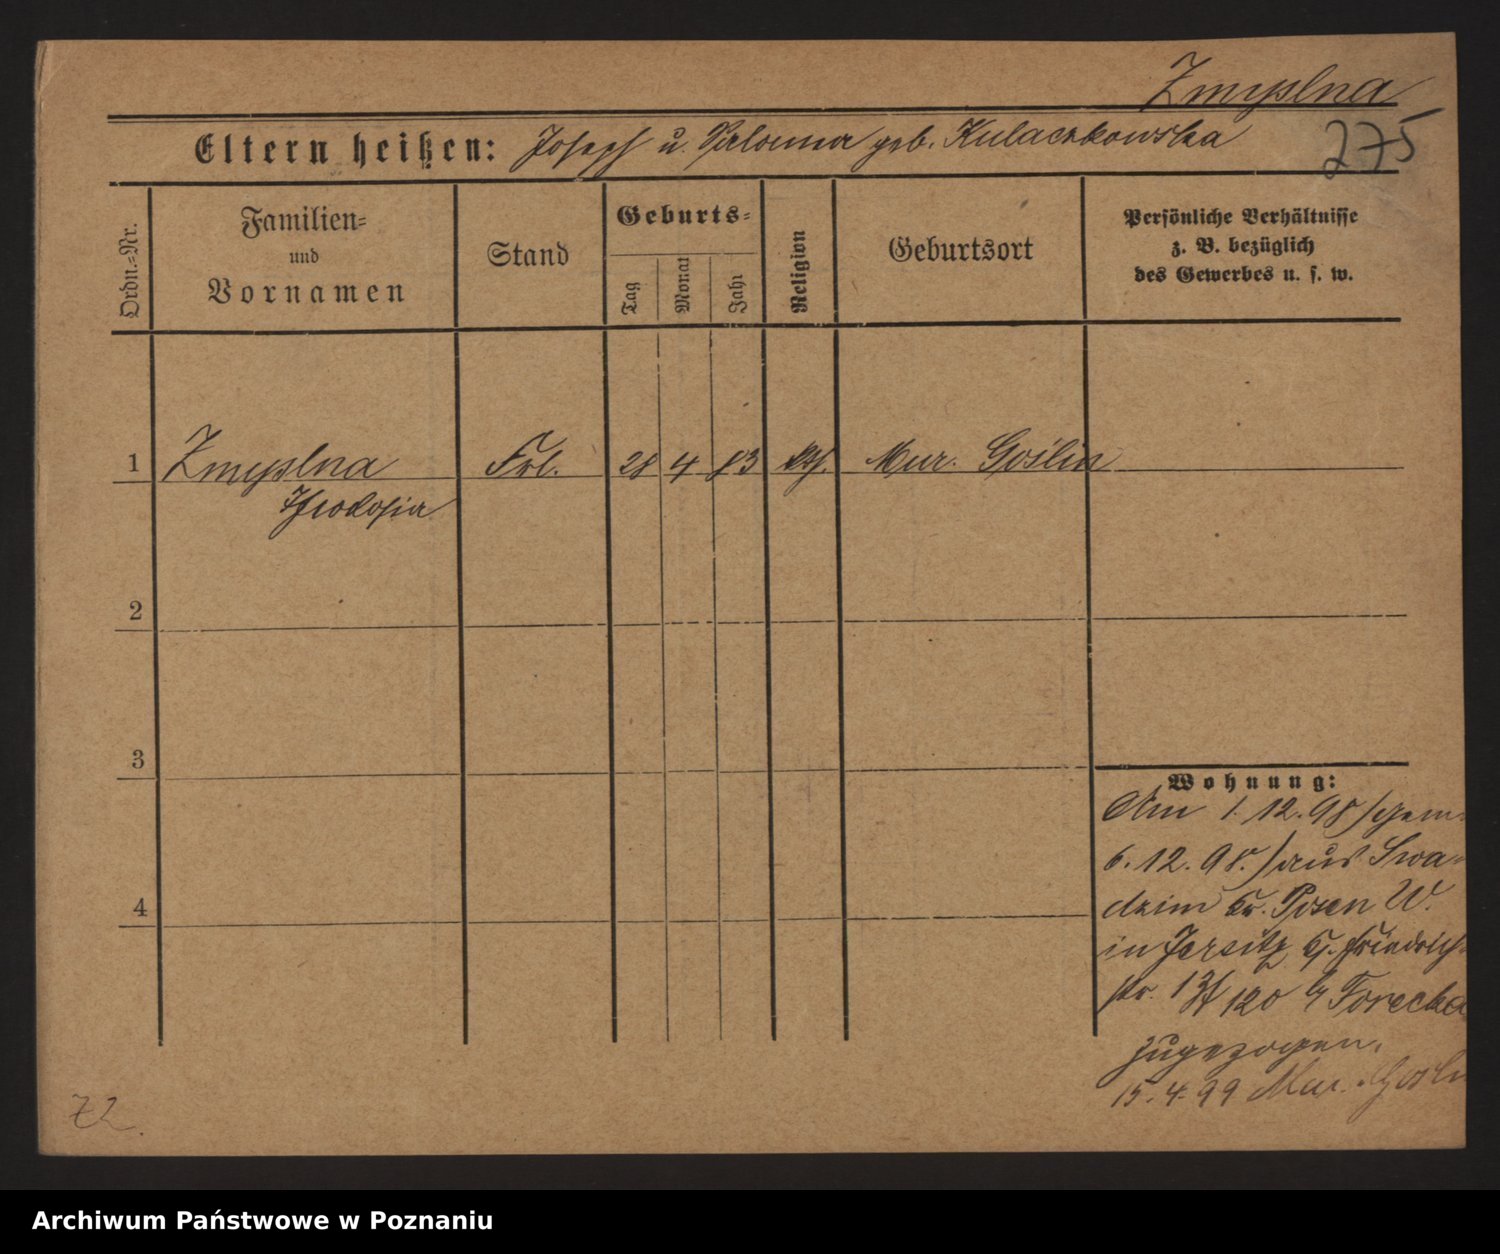 Zmyslna
Eltern heißen: Joseph u. Salomea geb. Kulaczkowska
275
Ordn.-Nr.
Familien-
und
Vornamen
Stand
Geburts-
Tag
Monat
Jahr
Religion
Geburtsort
Persönliche Verhältnisse
z. B. bezüglich
des Gewerbes u. s. w.
1 Zmyslna Frl. 28 4 83 kth. Mur. Goślin
Theodosia
2
3
Wohnung:
Am 1.12.98 /gem.
6.12.98./ aus Swa-
dzim Kr. Posen W.
4
in Jersitz Gr. Friedrich
str. 120 b/ Torecka
zugezogen.
15.4.99 Mur. Gosl
Z2.
Archiwum Państwowe w Poznaniu